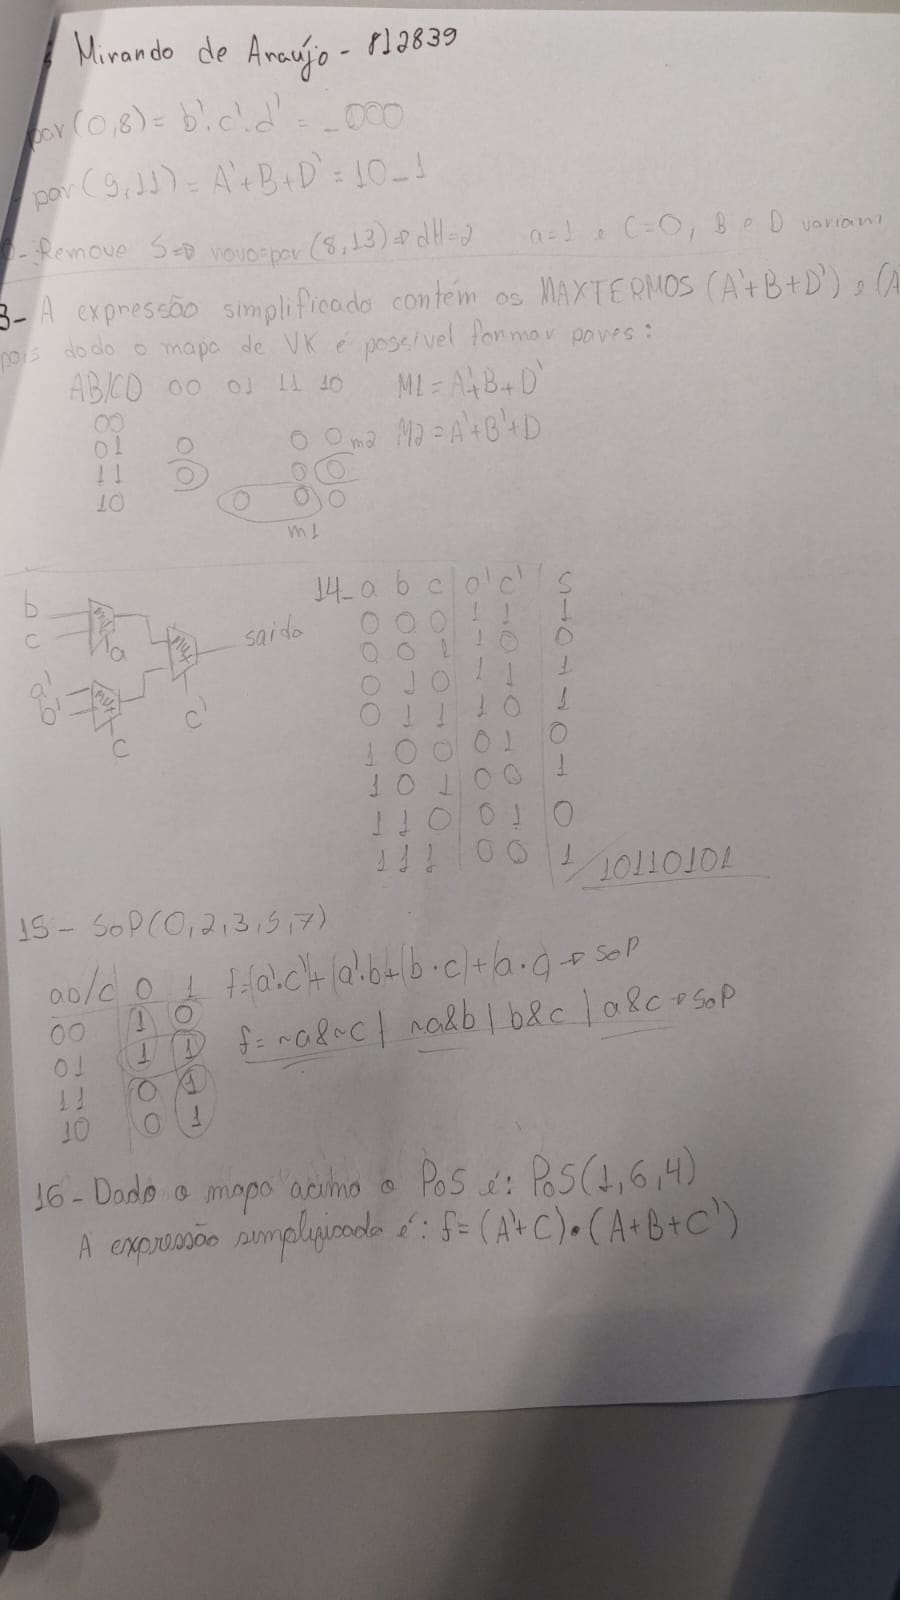 Mirando de Araújo - 812839
par(0,8) = b'.c'.d' = _000
par(9,11) = A'+B+D' = 10_1
Remove 5=> novo=par(8,13)=> dH=2 a=1 e C=0, B e D variam
3- A expressão simplificado contém os MAXTERMOS (A'+B+D'), (A
pois dado o mapa de VK é possível formar pares:
AB/CD 00 01 11 10 M1 = A'+B+D'
00
01 0 0 0 m2 M2 = A'+B'+D
11 0 0 0
10 0 0 0
m1
14- a b c a' c' S
b 0 0 0 1 1 1
c a saida 0 0 1 1 0 0
a' 0 1 0 1 1 1
b' c' 0 1 1 1 0 1
c 1 0 0 0 1 0
1 0 1 0 0 1
1 1 0 0 1 0
1 1 1 0 0 1 / 10110101
15- SoP(0,2,3,5,7)
ab/c 0 1 f=(a'.c')+(a'.b)+(b.c)+(a.c) → SoP
00 1 0 f= ~a&~c | ~a&b | b&c | a&c → SoP
01 1 1
11 0 1
10 0 1
16- Dado o mapa acima o PoS é: PoS(1,6,4)
A expressão simplificada é: f= (A'+C)•(A+B+C')